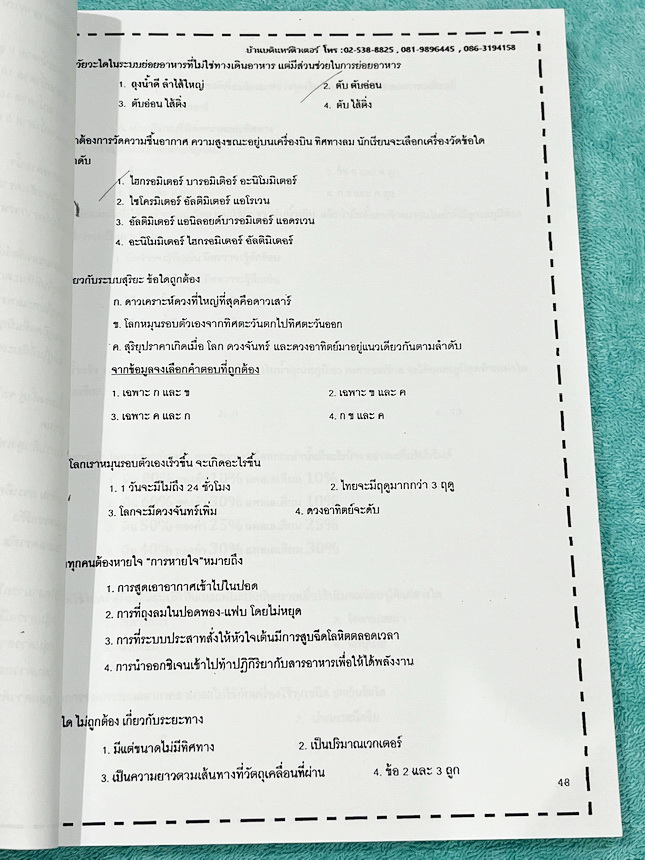 บ้านบดินทร์ติวเตอร์ โทร :02-538-8825 , 081-9896445 , 086-3194158
วัยวะใดในระบบย่อยอาหารที่ไม่ใช่ทางเดินอาหาร แต่มีส่วนช่วยในการย่อยอาหาร
1. ถุงน้ำดี ลำไส้ใหญ่ 2. ตับ ตับอ่อน
3. ตับอ่อน ไส้ติ่ง 4. ตับ ไส้ติ่ง
าต้องการวัดความชื้นอากาศ ความสูงขณะอยู่บนเครื่องบิน ทิศทางลม นักเรียนจะเลือกเครื่องวัดข้อใด
าดับ
1. ไฮกรอมิเตอร์ บารอมิเตอร์ อะนิโมมิเตอร์
2. ไซโครมิเตอร์ อัลติมิเตอร์ แอโรเวน
3. อัลติมิเตอร์ แอนิลอยด์บารอมิเตอร์ แอดรเวน
4. อะนิโมมิเตอร์ ไฮกรอมิเตอร์ อัลติมิเตอร์
ยวกับระบบสุริยะ ข้อใดถูกต้อง
ก. ดาวเคราะห์ดวงที่ใหญ่ที่สุดคือดาวเสาร์
ข. โลกหมุนรอบตัวเองจากทิศตะวันตกไปทิศตะวันออก
ค. สุริยุปราคาเกิดเมื่อ โลก ดวงจันทร์ และดวงอาทิตย์มาอยู่แนวเดียวกันตามลำดับ
จากข้อมูลจงเลือกคำตอบที่ถูกต้อง
1. เฉพาะ ก และ ข 2. เฉพาะ ข และ ค
3. เฉพาะ ค และ ก 4. ก ข และ ค
โลกเราหมุนรอบตัวเองเร็วขึ้น จะเกิดอะไรขึ้น
1. 1 วันจะมีไม่ถึง 24 ชั่วโมง 2. ไทยจะมีฤดูมากกว่า 3 ฤดู
3. โลกจะมีดวงจันทร์เพิ่ม 4. ดวงอาทิตย์จะดับ
าทุกคนต้องหายใจ "การหายใจ"หมายถึง
1. การสูดเอาอากาศเข้าไปในปอด
2. การที่ถุงลมในปอดพอง-แฟบ โดยไม่หยุด
3. การที่ระบบประสาทสั่งให้หัวใจเต้นมีการสูบฉีดโลหิตตลอดเวลา
4. การนำออกซิเจนเข้าไปทำปฏิกิริยากับสารอาหารเพื่อให้ได้พลังงาน
ใด ไม่ถูกต้อง เกี่ยวกับระยะทาง
1. มีแต่ขนาดไม่มีทิศทาง 2. เป็นปริมาณเวกเตอร์
3. เป็นความยาวตามเส้นทางที่วัตถุเคลื่อนที่ผ่าน 4. ข้อ 2 และ 3 ถูก
48